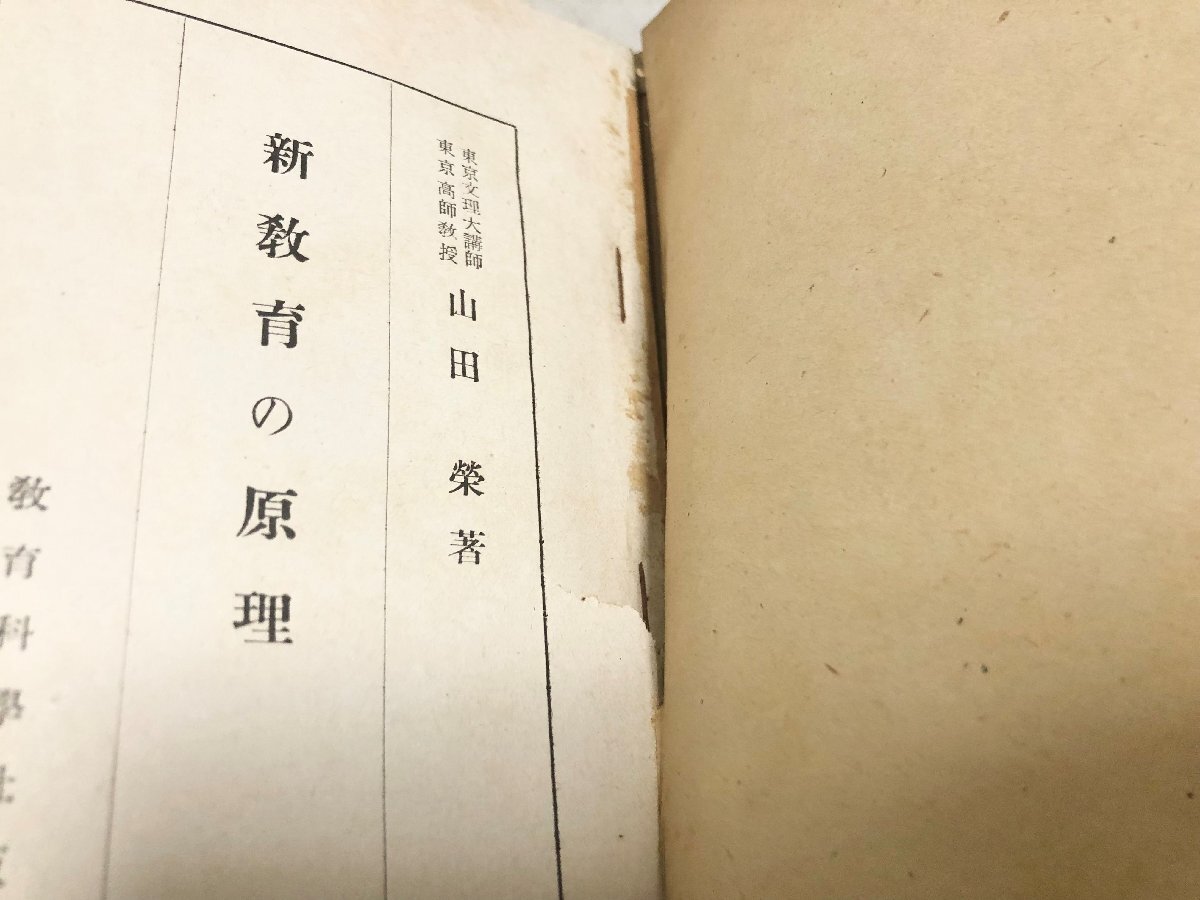 東京文理大講師
東京高師教授
山田榮著
新敎育の原理
敎育科學社